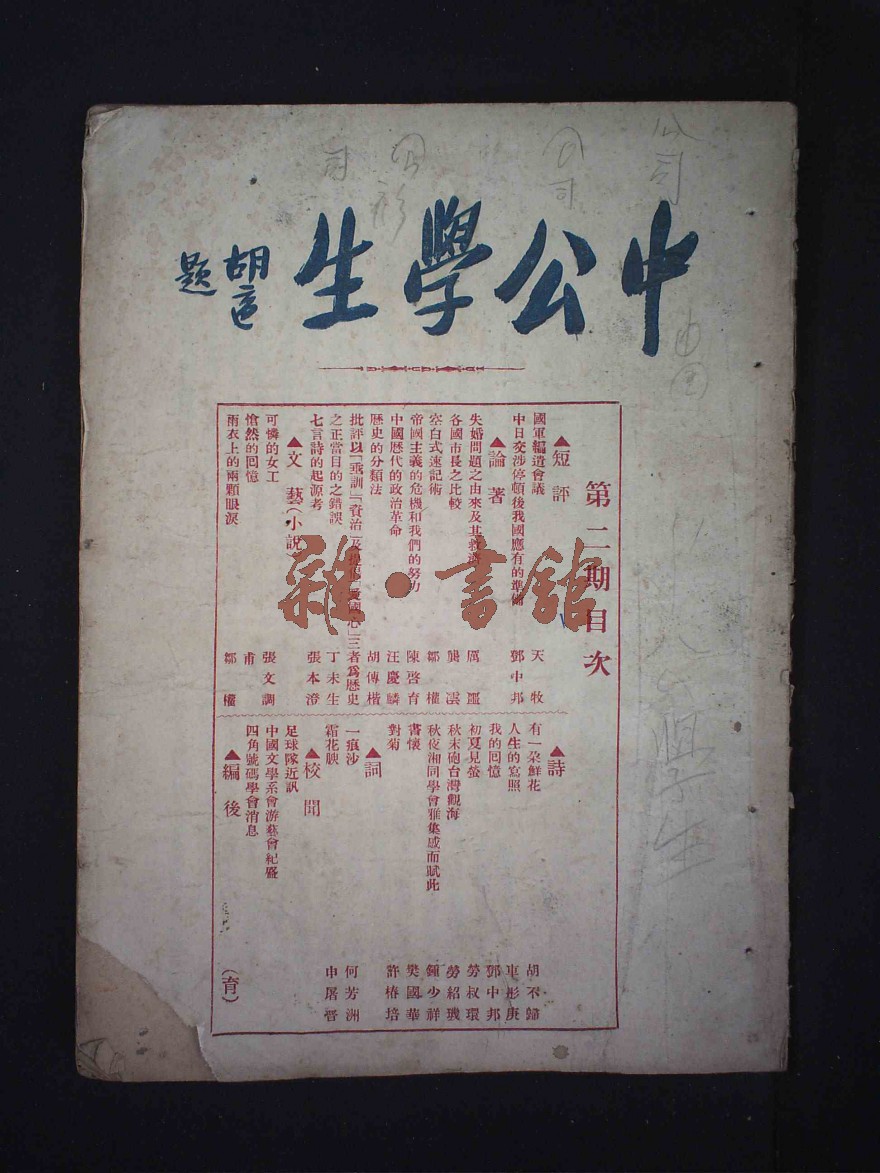 中公學生
胡適題
第二期目次
▲短評
國軍編遣會議 天牧
中日交涉停頓後我國應有的準備 鄧中邦
▲論著
失婚問題之由來及其救濟 厲璽
各國市長之比較 龔雲
空白式速記術 鄒權
帝國主義的危機和我們的努力 陳啓育
中國歷代的政治革命 汪慶麟
歷史的分類法 胡傳楷
批評以「垂訓」「資治」及提倡「愛國心」三者爲歷史
之正當目的之錯誤 丁未生
七言詩的起源考 張本澄
▲文藝(小說)
可憐的女工 張文調
愴然的回憶 甫
雨衣上的兩顆眼淚 鄒權
▲詩
有一朵鮮花 胡不歸
人生的寫照 車彤庚
我的回憶 鄧中邦
初夏見螢 勞叔環
秋末砲台灣觀海 勞紹璣
秋夜湘同學會雅集感而賦此 鍾少祥
書懷 樊國華
對菊 許椿培
▲詞
一痕沙 何芳洲
霜花腴 申屠晋
▲校聞
足球隊近訊
中國文學系會游藝會紀盛
四角號碼學會消息
▲編後 (育)
雜·書館
公司
公司
司
學生